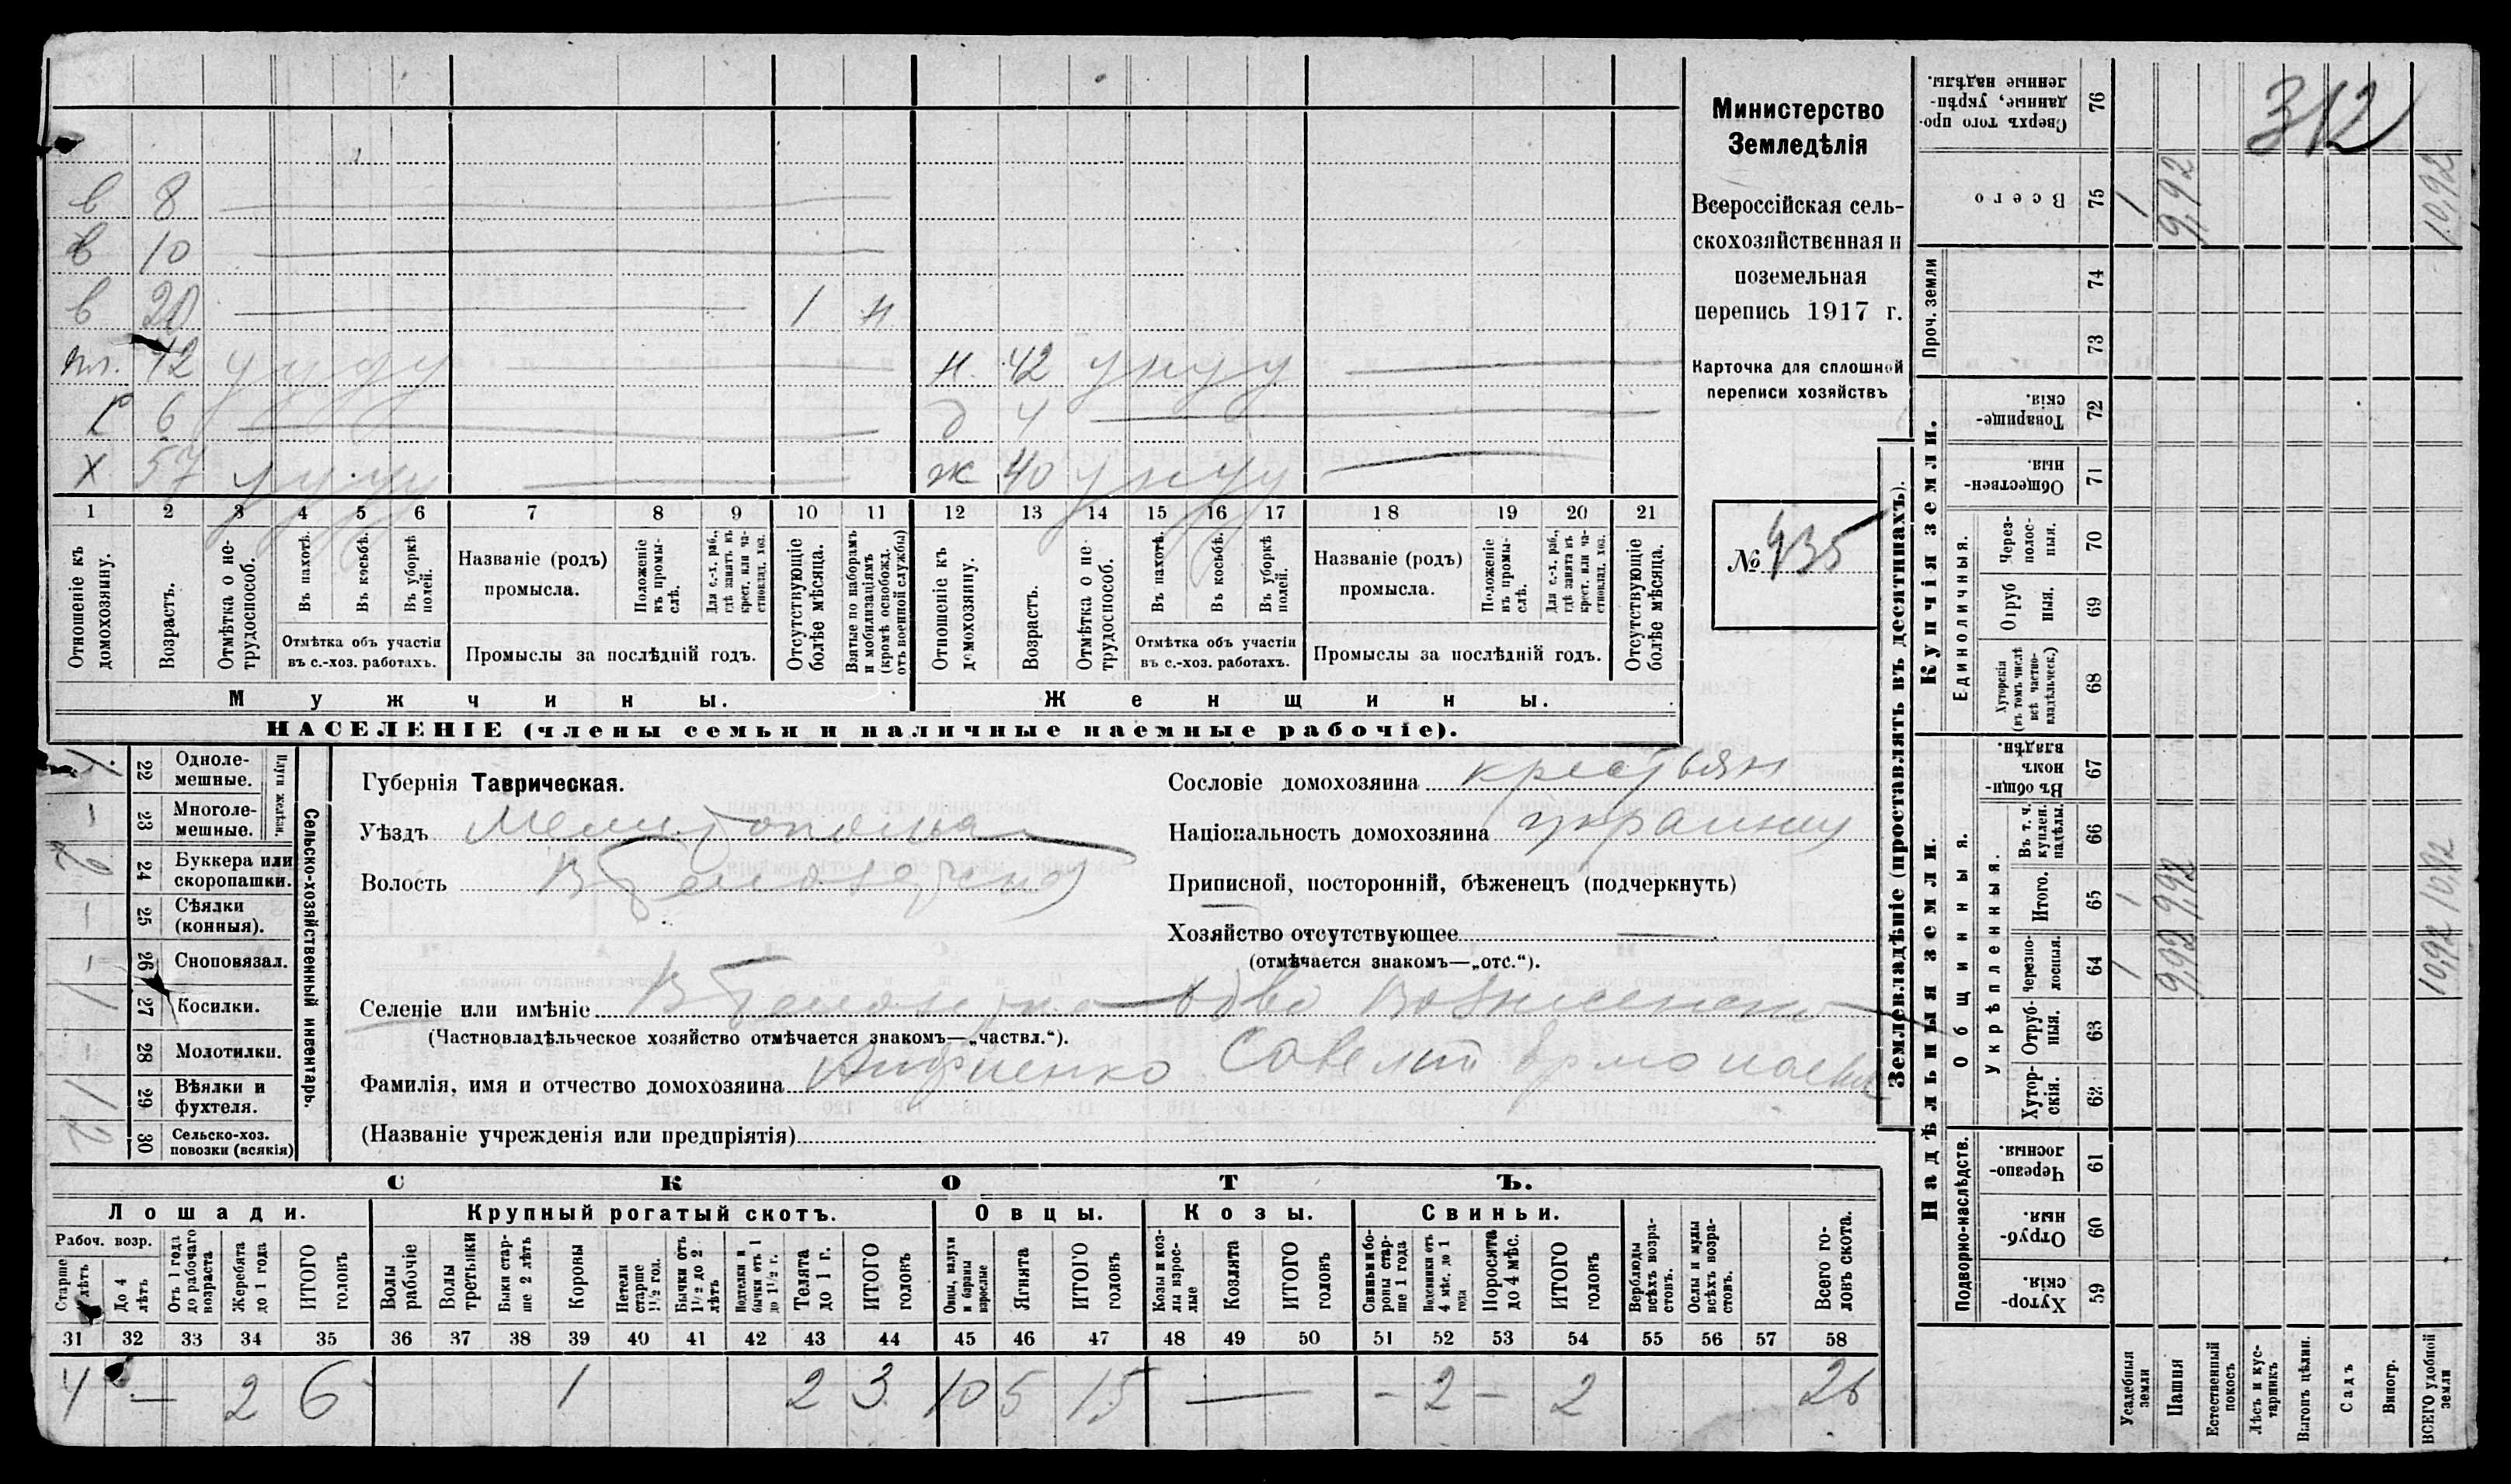 312
в 8
в 10
в 20 1 н
пл. 42 у у у у н. 42 у н у у
с 6 д 4
х 57 у у у у ж 40 у н у у
1 2 3 4 5 6 7 8 9 10 11 12 13 14 15 16 17 18 19 20 21
Отношеніе къ домохозяину.
Возрастъ.
Отмѣтка о нетрудоспособ.
Въ пахотѣ.
Въ косьбѣ.
Въ уборкѣ полей.
Отмѣтка объ участіи въ с.-хоз. работахъ.
Названіе (родъ) промысла.
Положеніе въ промыслѣ.
Для с.-х. раб., гдѣ занятъ въ крест. или частновлад. хоз.
Промыслы за послѣдній годъ.
Отсутствующіе болѣе мѣсяца.
Взятые по наборамъ и мобилизаціямъ (кромѣ освобожд. отъ военной службы)
Отношеніе къ домохозяину.
Возрастъ.
Отмѣтка о нетрудоспособ.
Въ пахотѣ.
Въ косьбѣ.
Въ уборкѣ полей.
Отмѣтка объ участіи въ с.-хоз. работахъ.
Названіе (родъ) промысла.
Положеніе въ промыслѣ.
Для с.-х. раб., гдѣ занятъ въ крест. или частновлад. хоз.
Промыслы за послѣдній годъ.
Отсутствующіе болѣе мѣсяца.
Мужчины.
Женщины.
НАСЕЛЕНІЕ (члены семьи и наличные наемные рабочіе).
Министерство
Земледѣлія
Всероссійская сель-
скохозяйственная и
поземельная
перепись 1917 г.
Карточка для сплошной
переписи хозяйствъ
№ 435
Сельско-хозяйственный инвентарь.
Плуги желѣзн.
22 Однолемешные. 1
23 Многолемешные. —
24 Буккера или скоропашки.
25 Сѣялки (конныя). —
26 Сноповязал. —
27 Косилки. 1
28 Молотилки. —
29 Вѣялки и фухтеля. 1
30 Сельско-хоз. повозки (всякія) 2
Губернія Таврическая.
Уѣздъ Мелитопольск
Волость В Белозерка
Сословіе домохозяина крестьян
Національность домохозяина украинец
Приписной, посторонній, бѣженецъ (подчеркнуть)
Хозяйство отсутствующее —
(отмѣчается знакомъ—„отс.“).
Селеніе или имѣніе В Белозерка
(Частновладѣльческое хозяйство отмѣчается знакомъ—„частвл.“).
Фамилія, имя и отчество домохозяина Савелій
(Названіе учрежденія или предпріятія)
СКОТЪ.
Лошади. Крупный рогатый скотъ. Овцы. Козы. Свиньи.
Рабоч. возр.
Старше 4 лѣтъ
До 4 лѣтъ
Отъ 1 года до рабочаго возраста
Жеребята до 1 года
ИТОГО головъ
Волы рабочіе
Волы третьяки
Быки старше 2 лѣтъ
Коровы
Нетели старше 1½ год.
Бычки отъ 1½ до 2 лѣтъ
Подтелки и бычки отъ 1 до 1½ г.
Телята до 1 г.
ИТОГО головъ
Овцы, валухи и бараны взрослые
Ягнята
ИТОГО головъ
Козы и козлы взрослые
Козлята
ИТОГО головъ
Свиньи и боровы старше 1 года
Подсвинки отъ 4 мѣс. до 1 года
Поросята до 4 мѣс.
ИТОГО головъ
Верблюды всѣхъ возрастовъ.
Ослы и мулы всѣхъ возрастовъ.
Всего головъ скота.
31 32 33 34 35 36 37 38 39 40 41 42 43 44 45 46 47 48 49 50 51 52 53 54 55 56 57 58
4 — 2 6 1 2 3 10 5 15 — - 2 - 2 26
Землевладѣніе (проставлять въ десятинахъ).
Надѣльныя земли. Купчія земли. Проч. земли
Подворно-наслѣдств.
Общинныя.
Укрѣпленныя.
Единоличныя.
59 Хуторскія.
60 Отрубныя.
61 Черезполосныя.
62 Хуторскія.
63 Отрубныя.
64 Черезполосныя. 1 9,92 10,92
65 Итого. 1 9,92 10,92
66 Въ т. ч. куплен. надѣлы.
67 Въ общинномъ владѣн.
68 Хуторскія (въ томъ числѣ всѣ частновладѣльческ.)
69 Отрубныя.
70 Черезполосныя.
71 Общественныя.
72 Товарищескія.
73
74
75 Всего 1 9,92 10,92
76 Сверхъ того проданные, укрѣпленные надѣлы.
Усадебныя земли
Пашня
Естественный покосъ
Лѣсъ и кустарникъ
Выгонъ цѣлин.
Садъ
Виногр.
ВСЕГО удобной земли